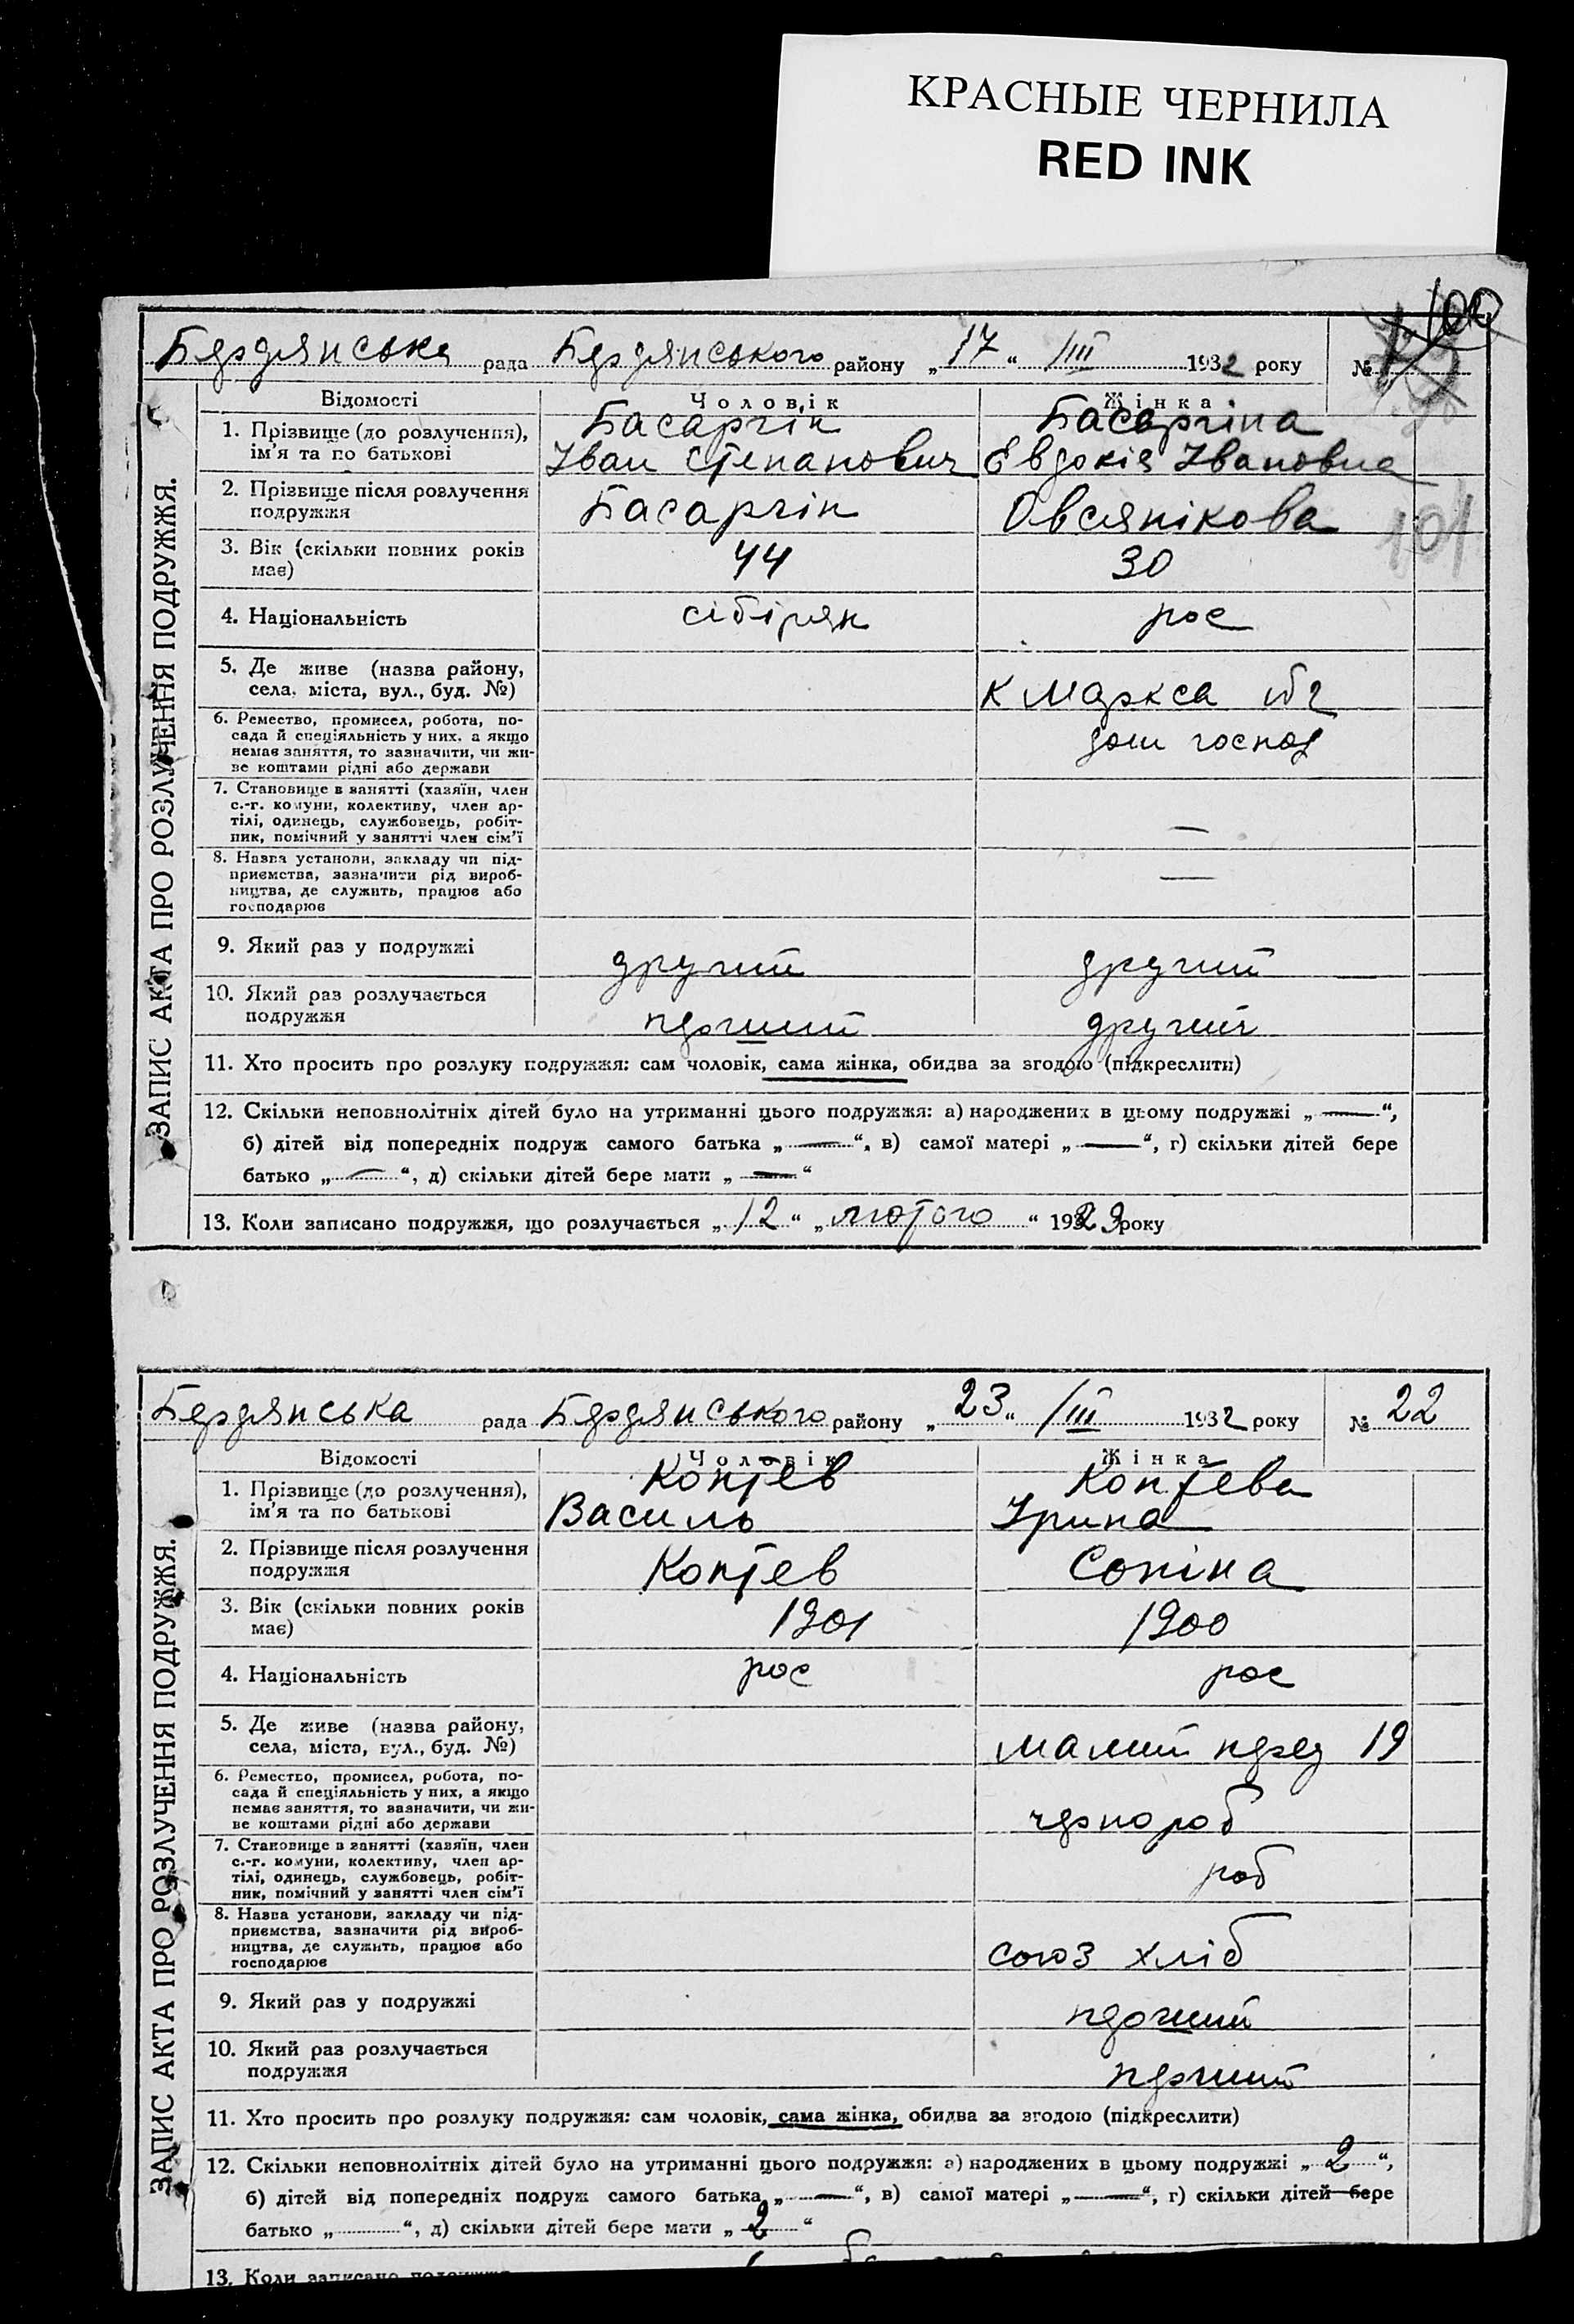 КРАСНЫЕ ЧЕРНИЛА
RED INK
100
Бердянська рада Бердянського району „17“ /III 1932 року №
Відомості Чоловік Жінка
1. Прізвище (до розлучення), ім'я та по батькові
Басаргін Басаргіна
Іван Степанович Евдокія Івановна
2. Прізвище після розлучення подружжя
Басаргін Овсянікова
101
3. Вік (скільки повних років має)
44 30
4. Національність сібіряк рос
5. Де живе (назва району, села, міста, вул., буд. №)
К Маркса
6. Ремество, промисел, робота, по-
сада й спеціяльність у них, а якщо
немає заняття, то зазначити, чи жи-
ве коштами рідні або держави
дом господ
7. Становище в занятті (хазяїн, член
с.-г. комуни, колективу, член ар-
тілі, одинець, службовець, робіт-
ник, помічний у занятті член сім'ї
—
8. Назва установи, закладу чи під-
приємства, зазначити рід вироб-
ництва, де служить, працює або
господарює
—
9. Який раз у подружжі другий другий
10. Який раз розлучається
подружжя перший другий
11. Хто просить про розлуку подружжя: сам чоловік, сама жінка, обидва за згодою (підкреслити)
12. Скільки неповнолітніх дітей було на утриманні цього подружжя: а) народжених в цьому подружжі „—“,
б) дітей від попередніх подруж самого батька „—“, в) самої матері „—“, г) скільки дітей бере
батько „—“, д) скільки дітей бере мати „—“
13. Коли записано подружжя, що розлучається „12“ „лютого“ 1929 року
ЗАПИС АКТА ПРО РОЗЛУЧЕННЯ ПОДРУЖЖЯ.
Бердянська рада Бердянського району „23“ /III 1932 року № 22
Відомості Чоловік Жінка
1. Прізвище (до розлучення),
ім'я та по батькові
Коптев Коптева
Василь Ірина
2. Прізвище після розлучення
подружжя
Коптев Сопіна
3. Вік (скільки повних років
має)
1901 1900
4. Національність рос рос
5. Де живе (назва району,
села, міста, вул., буд. №)
Малий перед 19
6. Ремество, промисел, робота, по-
сада й спеціяльність у них, а якщо
немає заняття, то зазначити, чи жи-
ве коштами рідні або держави
чернороб
7. Становище в занятті (хазяїн, член
с.-г. комуни, колективу, член ар-
тілі, одинець, службовець, робіт-
ник, помічний у занятті член сім'ї
роб
8. Назва установи, закладу чи під-
приємства, зазначити рід вироб-
ництва, де служить, працює або
господарює
союз хліб
9. Який раз у подружжі перший
10. Який раз розлучається
подружжя перший
11. Хто просить про розлуку подружжя: сам чоловік, сама жінка, обидва за згодою (підкреслити)
12. Скільки неповнолітніх дітей було на утриманні цього подружжя: а) народжених в цьому подружжі „2“,
б) дітей від попередніх подруж самого батька „—“, в) самої матері „—“, г) скільки дітей бере
батько „“, д) скільки дітей бере мати „2“
13. Коли записано подружжя
ЗАПИС АКТА ПРО РОЗЛУЧЕННЯ ПОДРУЖЖЯ.